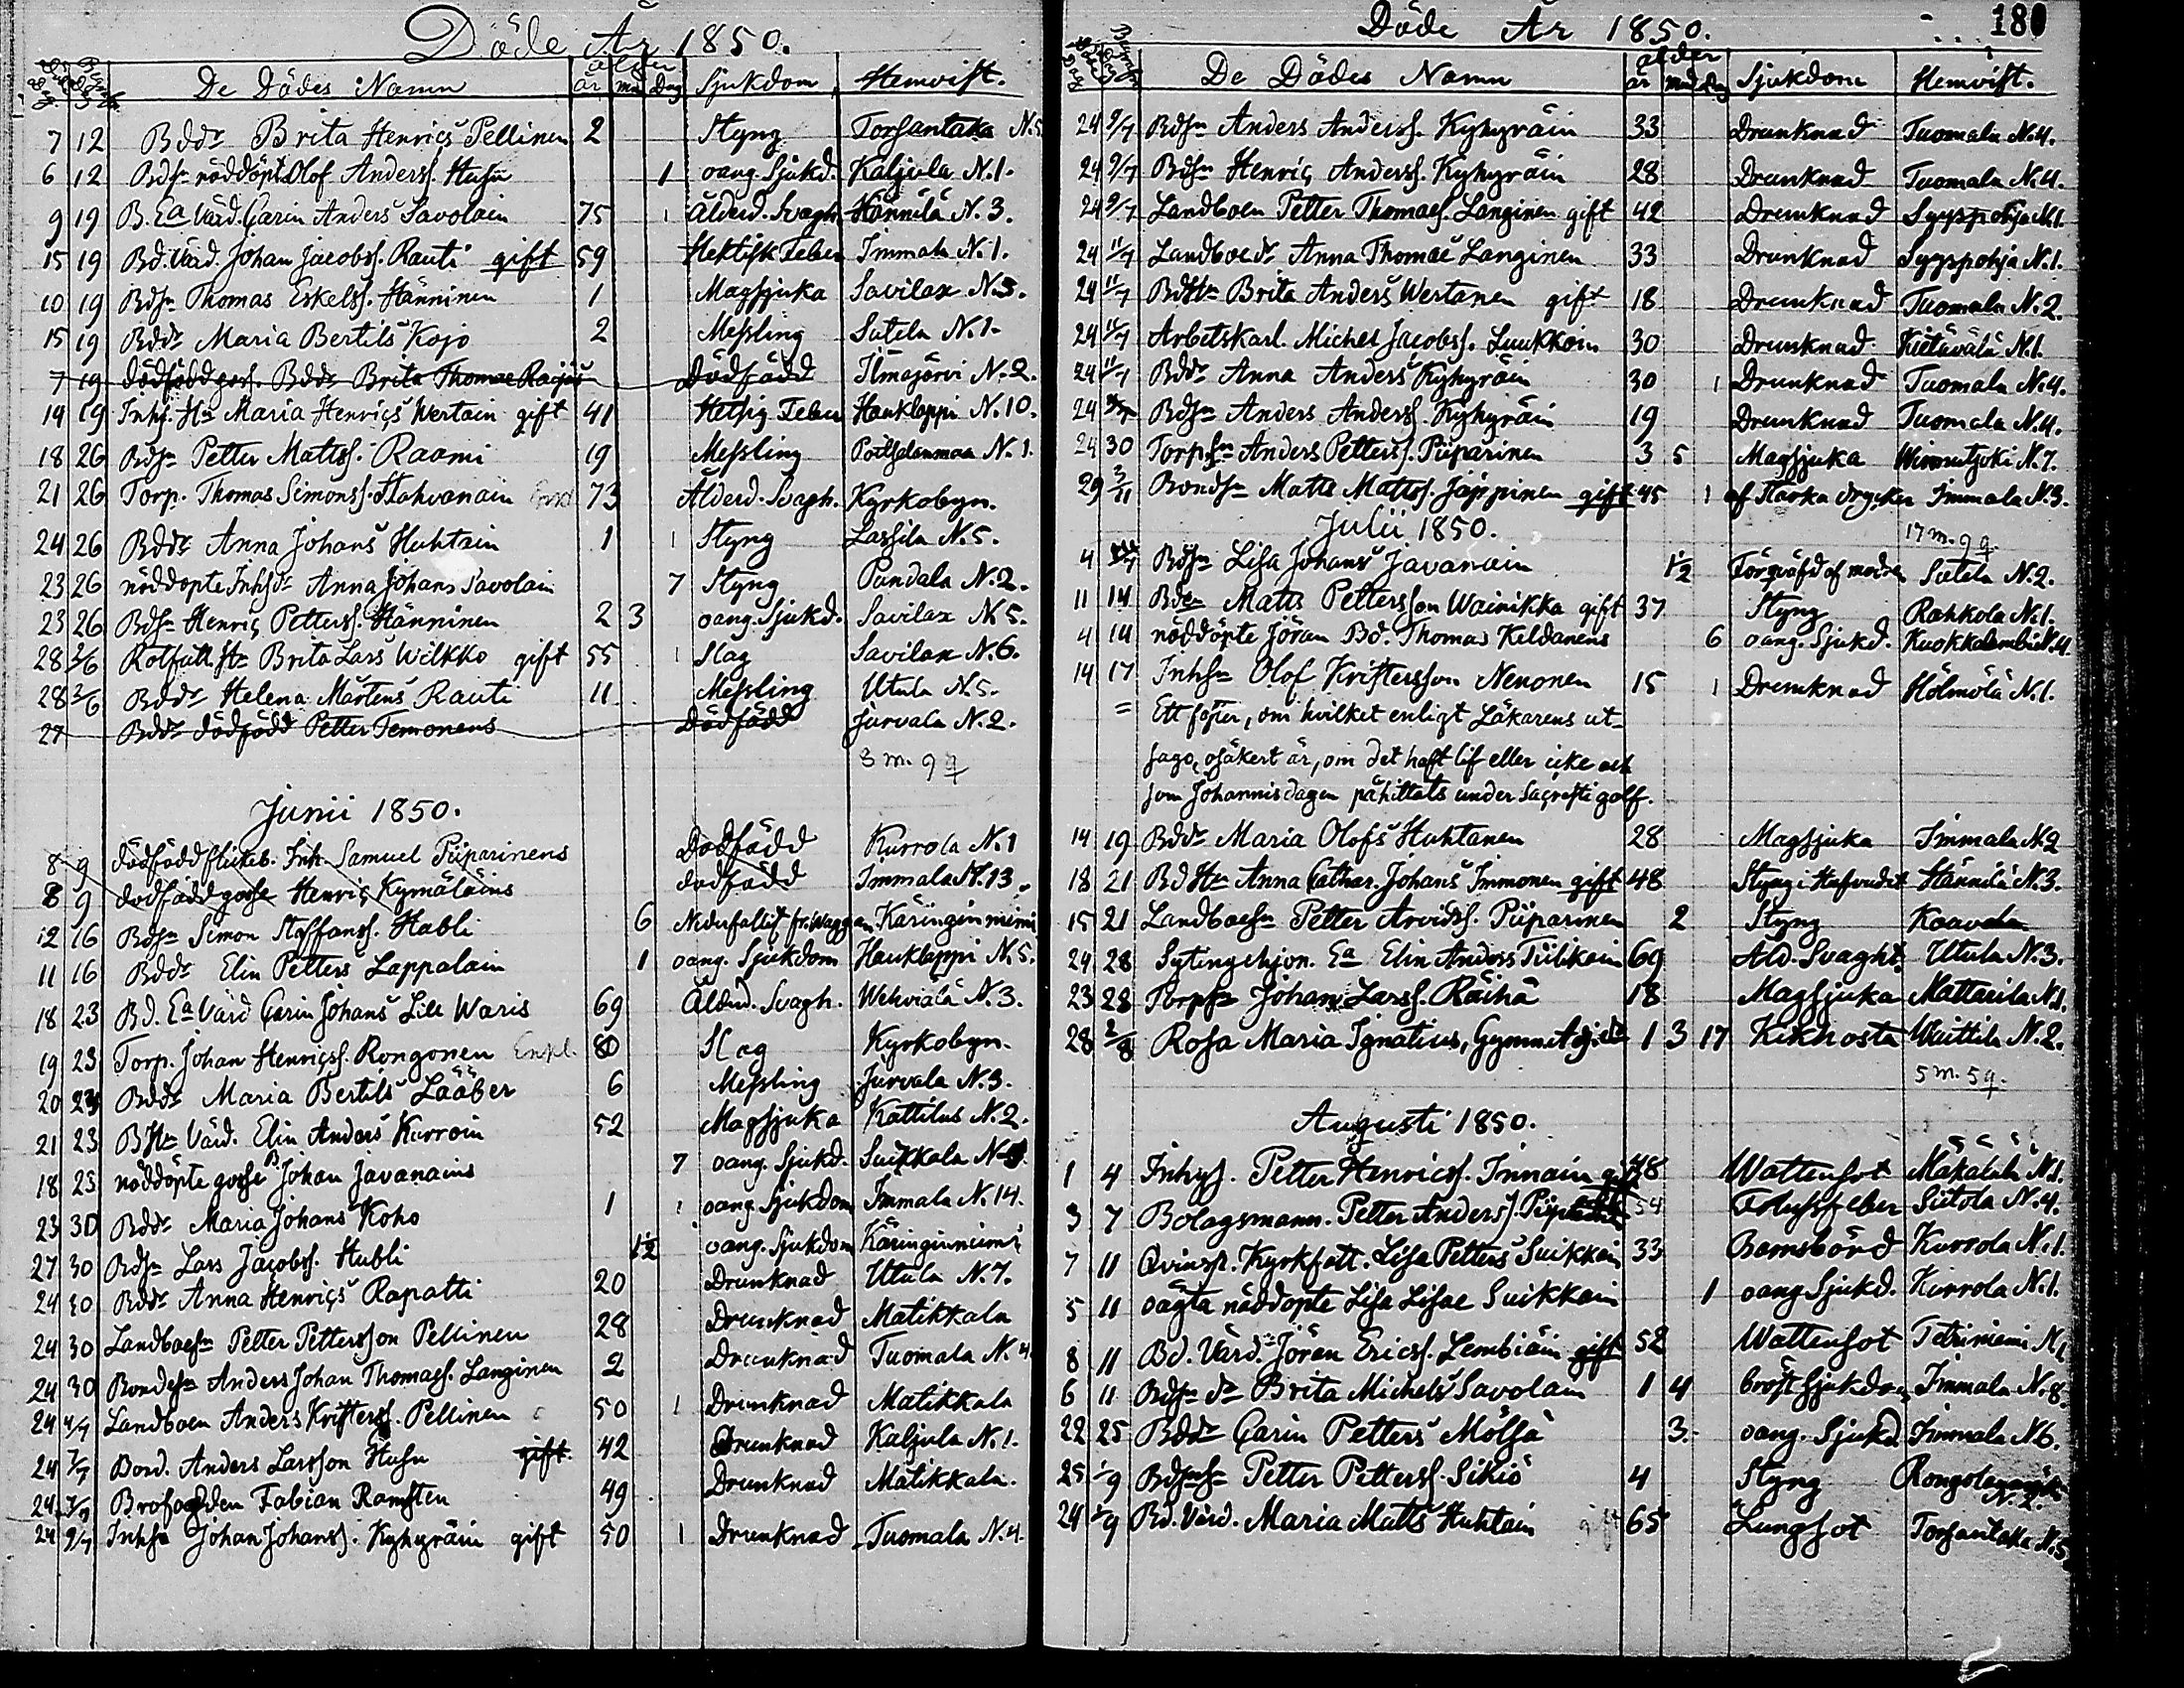 Döde År 1850.
Död dag Begrafn. dag De Dödes Namn ålder år mn dag Sjukdom Hemvist.
7 12 Bddr Brita Henrics Pellinen 2 Styng Torsantaka N.5
6 12 Bdsn nöddöpt Olof Anderss. Husu 1 oang. Sjukd. Kaljula N.1.
9 19 B. Ea Värd. Carin Anders Savolain 75 Ålderd. Svagh. Hännilä N.3.
15 19 Bd. Värd. Johan Jacobss. Rauti gift 59 Hektisk Feber Immala N.1.
10 19 Bdsn Thomas Eskelss. Hänninen 1 Magsjuka Savilax N.5.
15 19 Bddr Maria Bertils Kojo 2 Messling Sutela N.1.
7 19 dödfödd goss. Bddr Brita Thomae Dödfödd Ilmajärvi N.2.
14 19 Inhy. Hu Maria Henrics Wertain gift 41 Hetsig Feber Hauklappi N.10.
18 26 Bdsn Petter Matss. Raami 19 Messling Poitselanmaa N.1.
21 26 Torp. Thomas Simonss. Stahvanain Enkl 73 Ålderd. Svagh. Kyrkobyn.
24 26 Bddr Anna Johans Huhtain 1 Styng Lassila N.5.
23 26 nöddopte Inhsdr Anna Johans Savolain 7 Styng Pundala N.2.
23 26 Bdsn Henric Petterss. Hänninen 2 3 oang. Sjukd. Savilax N.5.
28 2/6 Rotfatt. Hu Brita Lars Wilkko gift 55 Slag Savilax N.6.
28 2/6 Bddr Helena Mårtens Rauti 11 Messling Utula N.5.
27 Bddr dödfödd Petter Temonens Dödfödd Jurvala N.2.
8 m. 9 q
Junii 1850.
8 9 dödfödd flickeb. Inh. Samuel Piiparinens Dödfödd Kurrola N.1
8 9 dödfödd gosse Henric Kymäläins dödfödd Immala N.13.
12 16 Bdsn Simon Staffanss. Habli 6 Nedufallit fr. Waggan Käringinmimi
11 16 Bddr Elin Petters Lappalain 1 oang. Sjukdom Hauklappi N.5.
18 23 Bd. Ea Värd Carin Johans Lill Waris 69 Ålderd. Svagh. Wehviälä N.3.
19 23 Torp. Johan Henricss. Rongonen Enkl. 80 Slag Kyrkobyn.
20 23 Bddr Maria Bertils Lääber 6 Messling Jurvala N.3.
21 23 BHu Värd. Elin Anders Kurroin 52 Magsjuka Kattilus N.2.
18 23 nöddöpte gosse B Johan Javanains 7 oang. Sjukd. Suikkala N.
23 30 Bddr Maria Johans Koho 1 oang. Sjukdom Immala N.14.
27 30 Bdsn Lars Jacobss. Hubli 1½ oang. Sjukdom Käringinniemi
24 30 Bddr Anna Henrics Rapatti 20 Drunknad Utula N.7.
24 30 Landboesn Petter Pettersson Pellinen 28 Drunknad Matikkala
24 30 Bondesn Anders Johan Thomass. Langinen 2 Drunknad Tuomala N.4.
24 4/7 Landboen Anders Kristerss. Pellinen 50 Drunknad Matikkala
24 7/7 Bond. Anders Larsson Husu gift. 42 Drunknad Kaljula N.1.
24 7/7 Brofogden Fabian Ramsten 49 Drunknad Matikkala.
24 9/7 Inhsn Johan Johanss. Kyhyräin gift 50 Drunknad Tuomala N.4.
Döde År 1850. 180
Död Dag Begrafn. dag De Dödes Namn ålder år mn dag Sjukdom Hemvist.
24 9/7 Bdsn Anders Anderss. Kyhyräin 33 Drunknad Tuomala N.4.
24 9/7 Bdsn Henric Anderss. Kyhyräin 28 Drunknad Tuomala N.4.
24 9/7 Landboen Petter Thomass. Langinen gift 42 Drunknad Syyspohja N.1.
24 11/7 Landboedr Anna Thomae Langinen 33 Drunknad Syyspohja N.1.
24 11/7 BdHu Brita Anders Wertanen gift 18 Drunknad Tuomala N.2.
24 11/7 Arbetskarl. Michel Jacobss. Luukkoin 30 Drunknad Kietäválä N.1.
24 11/7 Bddr Anna Anders Kyhyräin 30 Drunknad Tuomala N.4.
24 Bdsn Anders Anderss. Kyhyräin 19 Drunknad Tuomala N.4.
24 30 Torp.sn Anders Petterss. Piiparinen 3 5 Magsjuka N.7.
29 Bondsn Matts Mattss. Jäppinen gift 45 af Starka drycker Immala N.3.
Julii 1850. 17 m. 9 q
4 Bdsn Lisa Johans Javanain 1½ Förqväfd af modren Sutela N.2.
11 14 Bden Matts Pettersson Wainikka gift 37 Styng Rahkola N.1.
4 14 nöddöpte Jöran Bd. Thomas Keldanens 6 oang. Sjukd. Kuokkalambi N.4.
14 17 Inhsn Olof Kristersson Nenonen 15 Drunknad Hölmölä N.1.
= Ett foster, om hvilket enligt Läkarens ut-
sago, osäkert är, om det haft lif eller icke och
som Johannisdagen påhittats under Sacristi golf.
14 19 Bddr Maria Olofs Huhtanen 28 Magsjuka Immala N.2
18 21 BdHu Anna Cathar. Johans Immonen gift 48 Styng i Hufvudet Hännilä N.3.
15 21 Landboesn Petter Arvidss. Piiparinen 2 Styng Kaavala
24 28 Sytingshjon. Ea Elin Anders Tiilikain 69 Ald. Svaght. Utula N.3.
23 28 Torpsn Johan Larss. Räihä 18 Magsjuka Mattarila N.1.
28 2/8 Rosa Maria Ignatius, Gymn.Adj.dr 1 3 17 Kikhosta Waittila N.2.
5 m. 5 q.
Augusti 1850.
1 4 Inhys. Petter Henricss. Innain gift 48 Wattensot Mäkälälä N.1.
3 7 Bolagsmann. Petter Anderss. 54 feber Siitola N.4.
7 11 Qvinsp. Kyrkfatt. Lisa Petters Suikkain 33 Barnsbörd Kurrola N.1.
5 11 oägta nöddopte Lisa Lisae Suikkain 1 oang. Sjukd. Kurrola N.1.
8 11 Bd. Värd. Jöran Ericss. Lembiäin gift 52 Wattensot Tetriniemi N.1
6 11 Bdsn dr Brita Michels Savolain 1 4 bröst sjukdom Immala N.8.
22 25 Bddr Carin Petters Mölsä 3. oang. Sjukd. Immala N6.
25 1/9 Bdsns Petter Petterss. Sikiö 4 Styng N.2.
24 1/9 Bd. Värd. Maria Matts Huhtain gift 65 Lungsot Torsantaka N.5